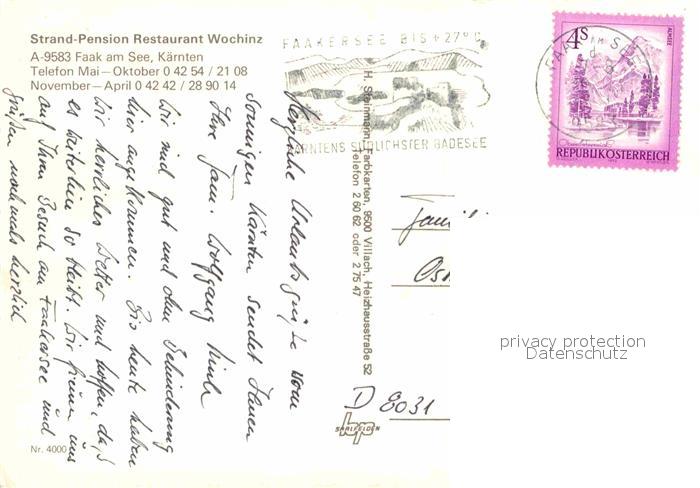 Strand-Pension Restaurant Wochinz
A-9583 Faak am See, Kärnten
Telefon Mai—Oktober 0 42 54 / 21 08
November—April 0 42 42 / 28 90 14
FAAKERSEE BIS +27°C
KÄRNTENS SÜDLICHSTER BADESEE
FAAK AM SEE
4 S
ALMSEE
REPUBLIK ÖSTERREICH
Herzliche Urlaubsgrüße vom
sonnigen Kärnten sendet Ihnen
Ihre Fam. Wolfgang
Wir sind gut und ohne Behinderung
hier angekommen. Bis heute haben
wir herrliches Wetter und hoffen, daß
es weiterhin so bleibt. Wir freuen uns
auf Ihren Besuch am Faakersee und
grüßen nochmals herzlich
H. Steinmann, Farbkarten, 9500 Villach, Heizhausstraße 52
Telefon 2 60 62 oder 2 75 47
Fami
D 8031
SAALFELDEN
Nr. 4000
privacy protection
Datenschutz